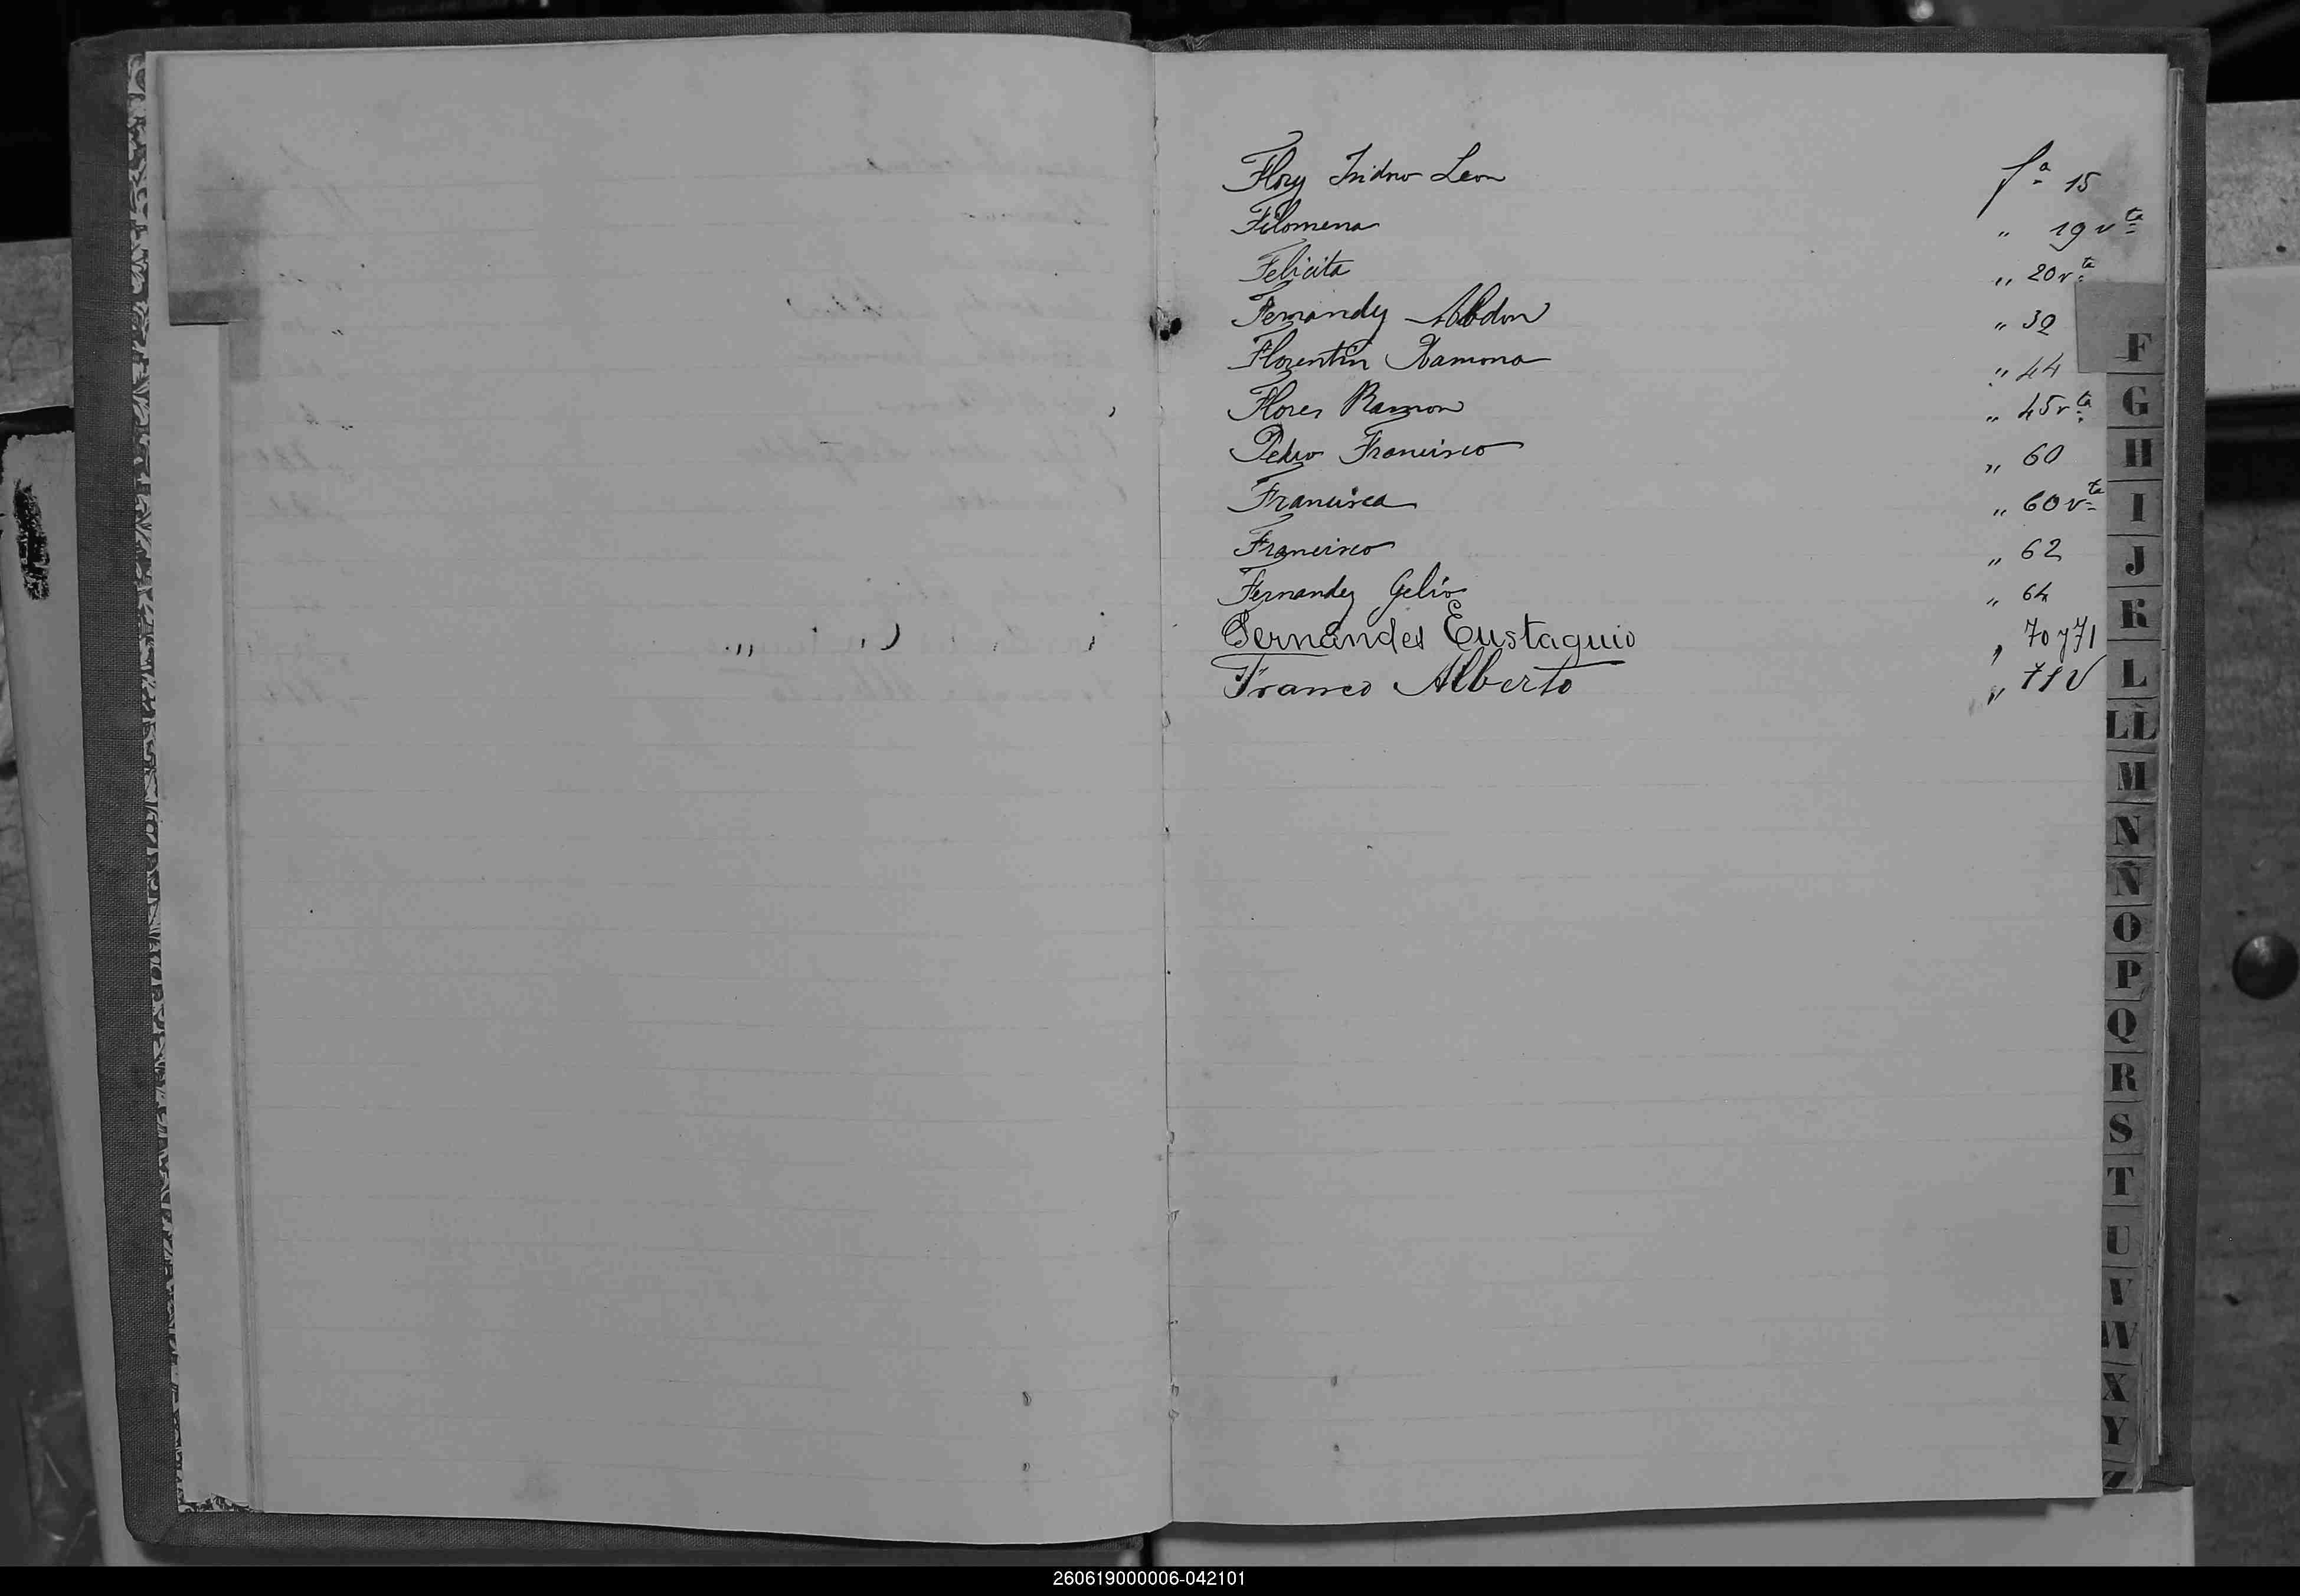 Flory Isidro Leon fª 15
Filomena " 19 vta
Felicita " 20 vta
Fernandez Abdon " 39
Florentin Ramona " 44
Flores Ramon " 45 vta
Pedro Francisco " 60
Francisca " 60 vta
Francisco " 62
Fernandez Gelio " 64
Fernandes Eustaquio " 70 y 71
Franco Alberto " 71 V
F
G
H
I
J
K
L
LL
M
N
Ñ
O
P
Q
R
S
T
U
V
W
X
Y
Z
260619000006-042101